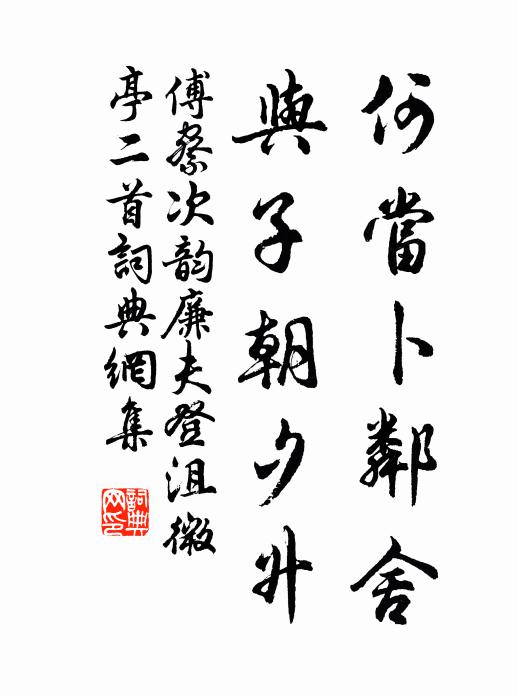 何當卜鄰舍
與子朝夕升
傅察次韵廉夫登沮漖
亭二首詞典網集
詞典
网印